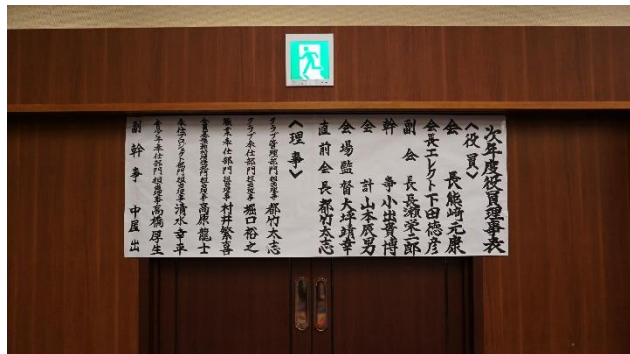 次年度役員理事表
〈役員〉
会長 熊﨑元康
会長エレクト 下田徳彦
副会長 長瀬栄二郎
幹事 小出貴博
会計 山本辰男
会場監督 大坪靖幸
直前会長 都竹太志
〈理事〉
クラブ管理部門担当理事 都竹太志
クラブ奉仕部門担当理事 堀口裕之
職業奉仕部門担当理事 村井繁喜
高原龍士
奉仕プロジェクト部門担当理事 清水幸平
青少年奉仕部門担当理事 高橋厚生
副幹事 中屋出